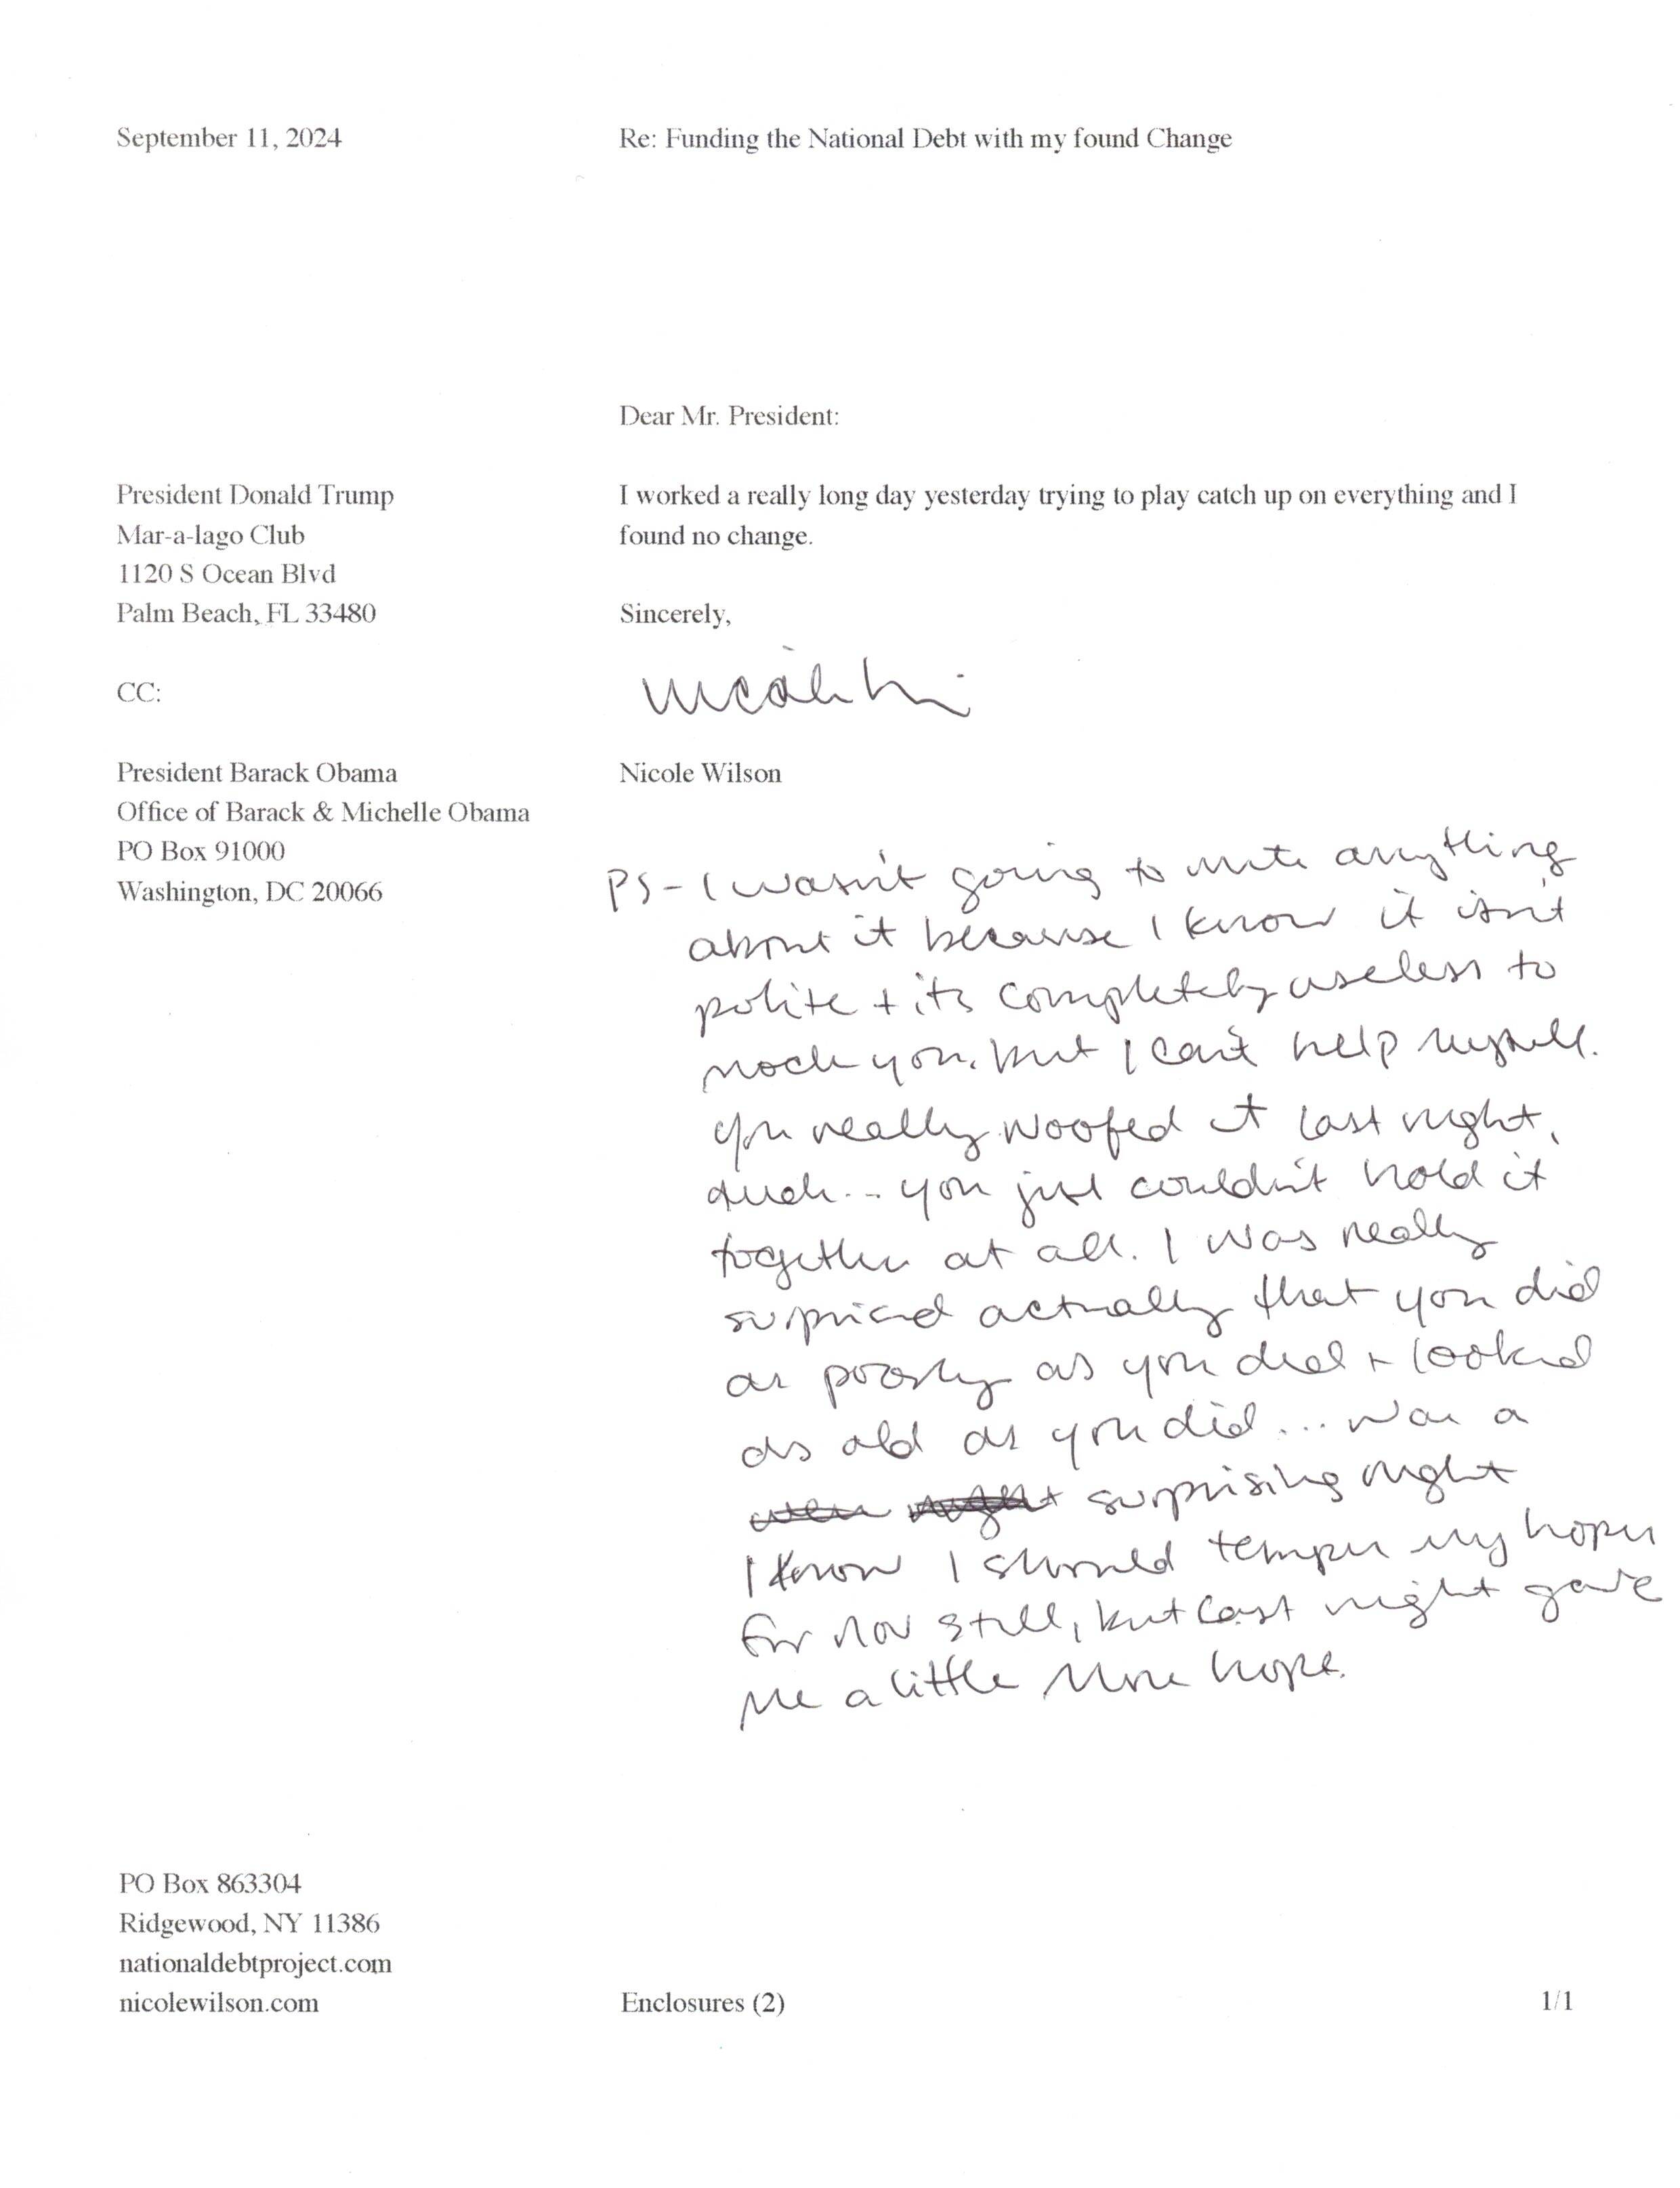 September 11, 2024
Re: Funding the National Debt with my found Change
Dear Mr. President:
President Donald Trump
Mar-a-lago Club
1120 S Ocean Blvd
Palm Beach, FL 33480
CC:
President Barack Obama
Office of Barack & Michelle Obama
PO Box 91000
Washington, DC 20066
I worked a really long day yesterday trying to play catch up on everything and I
found no change.
Sincerely,
Nicole Wilson
PS - I wasn't going to write anything
about it because I know it isn't
polite + its completely useless to
mock you, but I can't help myself.
You really woofed it last night,
dude... you just couldn't hold it
together at all. I was really
surprised actually that you did
as poorly as you did + looked
as old as you did... was a
surprising night
I know I should temper my hopes
for nov still, but last night gave
me a little more hope.
PO Box 863304
Ridgewood, NY 11386
nationaldebtproject.com
nicolewilson.com
Enclosures (2)
1/1